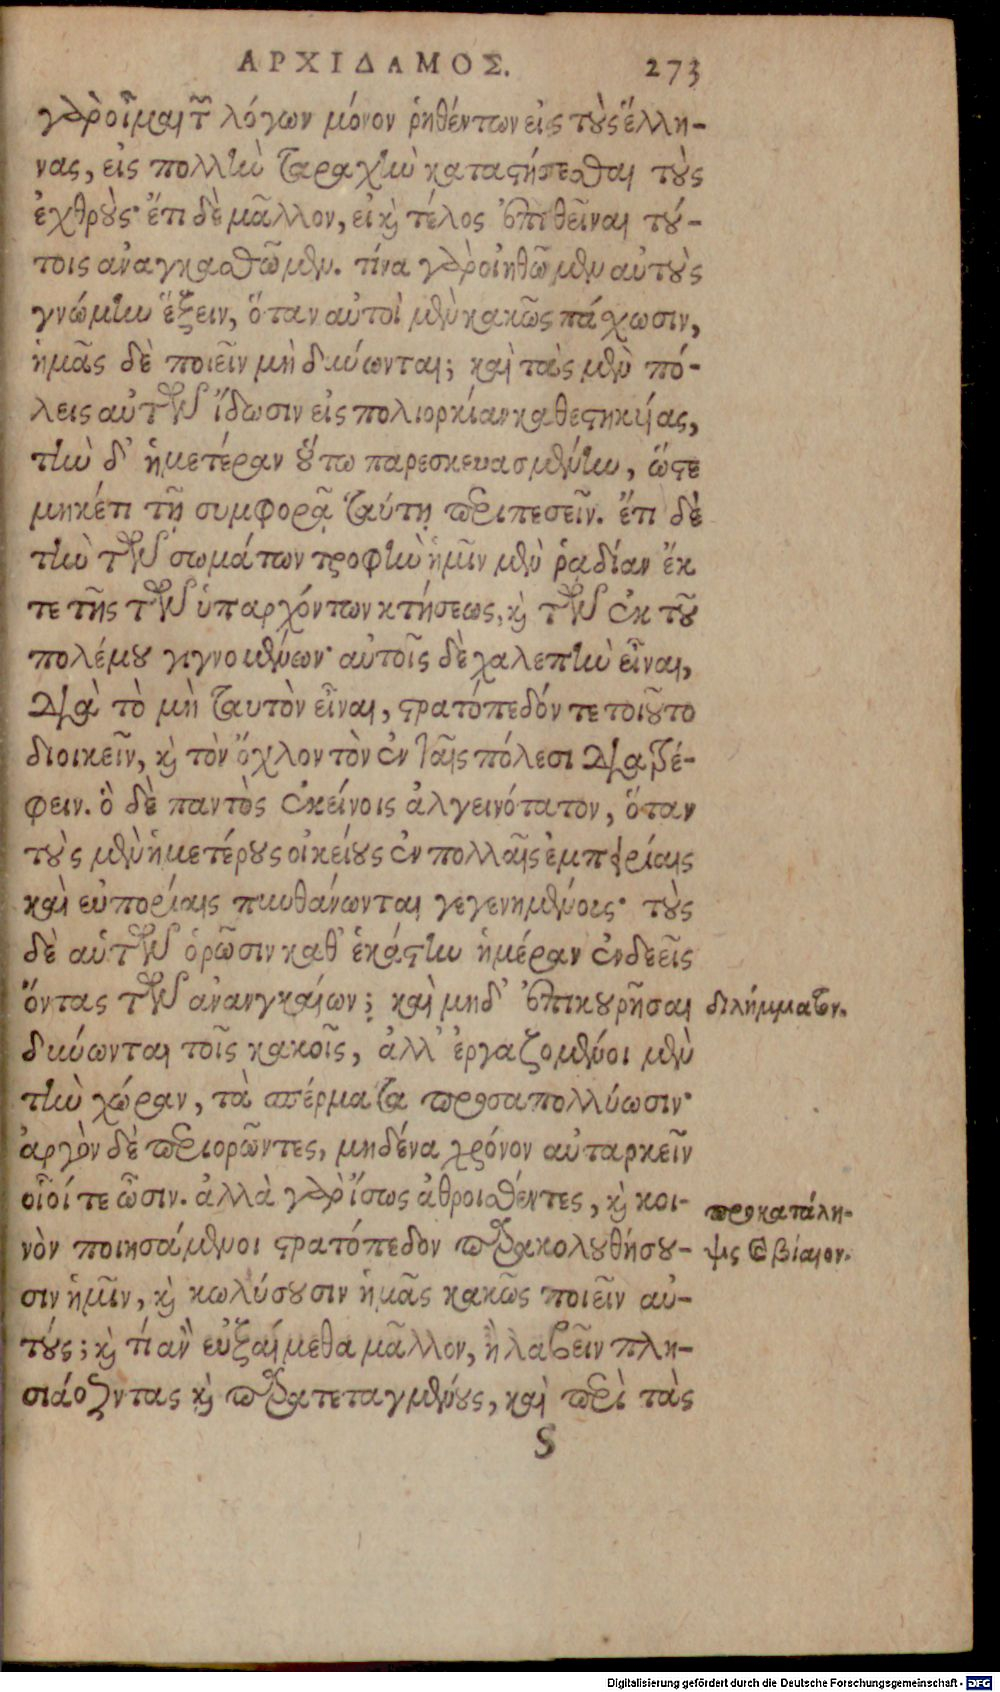 ΑΡΧΙΔΑΜΟΣ. 273
γὰρ οἶμαι τ̃ λόγων μόνον ῥηθέντων εἰς τοὺς ἕλλη-
νας, εἰς πολλὴν ταραχὴν καταστήσεσθαι τοὺς
ἐχθρούς· ἔτι δὲ μᾶλλον, εἰ καὶ τέλος ἐπιθεῖναι τού-
τοις ἀναγκασθῶμεν. τίνα γὰρ οἰηθῶμεν αὐτοὺς
γνώμην ἕξειν, ὅταν αὐτοὶ μὲν κακῶς πάσχωσιν,
ἡμᾶς δὲ ποιεῖν μὴ δύνωνται; καὶ τὰς μὲν πό-
λεις αὑτῶν ἴδωσιν εἰς πολιορκίαν καθεστηκυίας,
τὴν δ' ἡμετέραν οὕτω παρεσκευασμένην, ὥστε
μηκέτι τῇ συμφορᾷ ταύτῃ περιπεσεῖν. ἔτι δὲ
τὴν τῶν σωμάτων τροφὴν ἡμῖν μὲν ῥαδίαν ἔκ
τε τῆς τῶν ὑπαρχόντων κτήσεως, καὶ τῶν ἐκ τοῦ
πολέμου γιγνομένων· αὐτοῖς δὲ χαλεπὴν εἶναι,
διὰ τὸ μὴ ταυτὸν εἶναι, στρατόπεδόν τε τοιοῦτο
διοικεῖν, καὶ τὸν ὄχλον τὸν ἐν ταῖς πόλεσι διατρέ-
φειν. ὃ δὲ παντὸς ἐκείνοις ἀλγεινότατον, ὅταν
τοὺς μὲν ἡμετέρους οἰκείους ἐν πολλαῖς ἐμπειρίαις
καὶ εὐπορίαις πυνθάνωνται γεγενημένοις· τοὺς
δὲ αὑτῶν ὁρῶσιν καθ' ἑκάστην ἡμέραν ἐνδεεῖς
ὄντας τῶν ἀνανγκαίων; καὶ μηδ' ἐπικουρῆσαι διλήμματον.
δύνωνται τοῖς κακοῖς, ἀλλ' ἐργαζομένοι μὲν
τὴν χώραν, τὰ σπέρματα προσαπολλύωσιν·
ἀργὸν δὲ περιορῶντες, μηδένα χρόνον αὐταρκεῖν
οἷοί τε ὦσιν. ἀλλὰ γὰρ ἴσως ἀθροισθέντες, καὶ κοι- προκατάλη-
νὸν ποιησάμενοι στρατόπεδον παρακολουθήσου- ψις καὶ βίαιον.
σιν ἡμῖν, καὶ κωλύσουσιν ἡμᾶς κακῶς ποιεῖν αὐ-
τούς; καὶ τί ἂν εὐξαίμεθα μᾶλλον, ἢ λαβεῖν πλη-
σιάζοντας καὶ παρατεταγμένους, καὶ περὶ τὰς
S
Digitalisierung gefördert durch die Deutsche Forschungsgemeinschaft - DFG